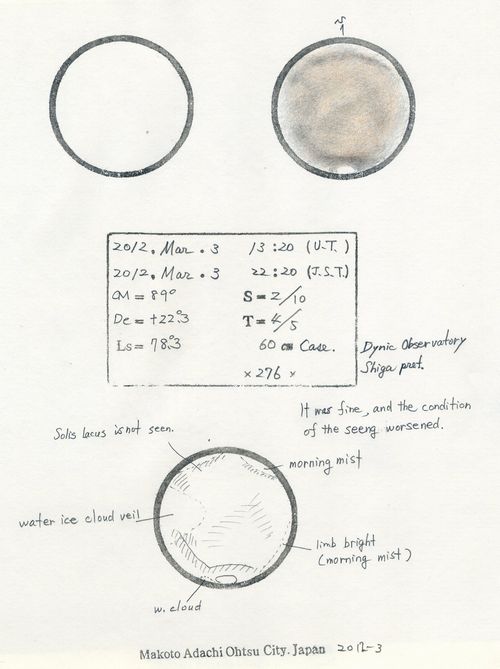 2012. Mar. 3 13:20 (U.T.)
2012. Mar. 3 22:20 (J.S.T.)
CM = 89° S = 2/10
De = +22°.3 T = 4/5
Ls = 78°.3 60 cm Case.
× 276 ×
Dynic Observatory
Shiga pref.
It was fine, and the condition
of the seeng worsened.
Solis lacus is not seen.
morning mist
water ice cloud veil
limb bright
(morning mist)
w. cloud
Makoto Adachi Ohtsu City. Japan 2012-3